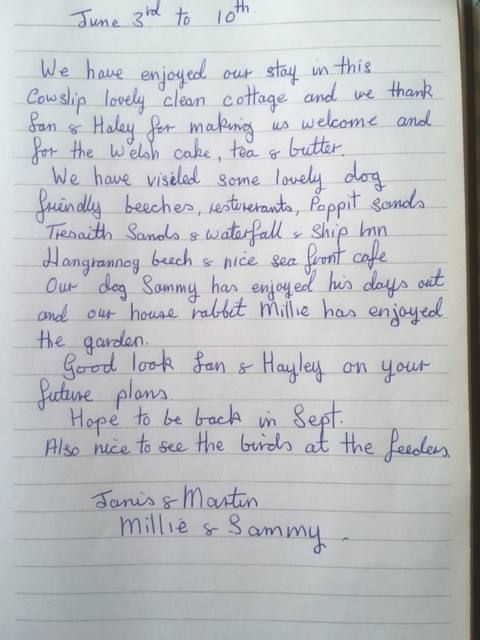 June 3rd to 10th.
We have enjoyed our stay in this
Cowslip lovely clean cottage and we thank
Ian & Haley for making us welcome and
for the Welsh cake, tea & butter.
We have visëled some lovely dog
friendly beeches, resturerants, Poppit sands
Tresaith Sands & waterfall & Ship Inn
Hangrannog beech & nice sea front cafe
Our dog Sammy has enjoyed his days out
and our house rabbit Millie has enjoyed
the garden.
Good look Ian & Hayley on your
future plans.
Hope to be back in Sept.
Also nice to see the birds at the feeders.
Janis & Martin
Millie & Sammy.